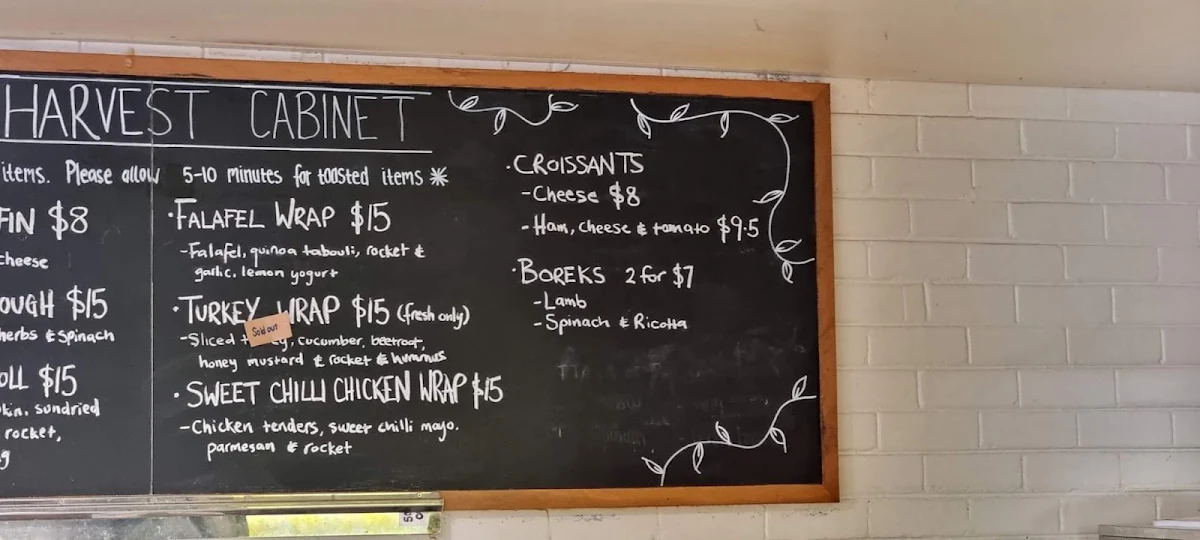 HARVEST CABINET
items. Please allow 5-10 minutes for toosted items *
FIN $8
cheese
OUGH $15
herbs & spinach
OLL $15
kin, sundried
rocket,
g
·FALAFEL WRAP $15
-Falafel, quinoa tabouli, rocket &
garlic, lemon yogurt
·TURKEY WRAP $15 (fresh only)
Sold out
-Sliced t ey, cucumber, beetroot,
honey mustard & rocket & hummus
·SWEET CHILLI CHICKEN WRAP $15
-Chicken tenders, sweet chilli mayo.
parmesan & rocket
·CROISSANTS
-Cheese $8
-Ham, cheese & tomato $9.5
·BOREKS 2 for $7
-Lamb
-Spinach & Ricotta